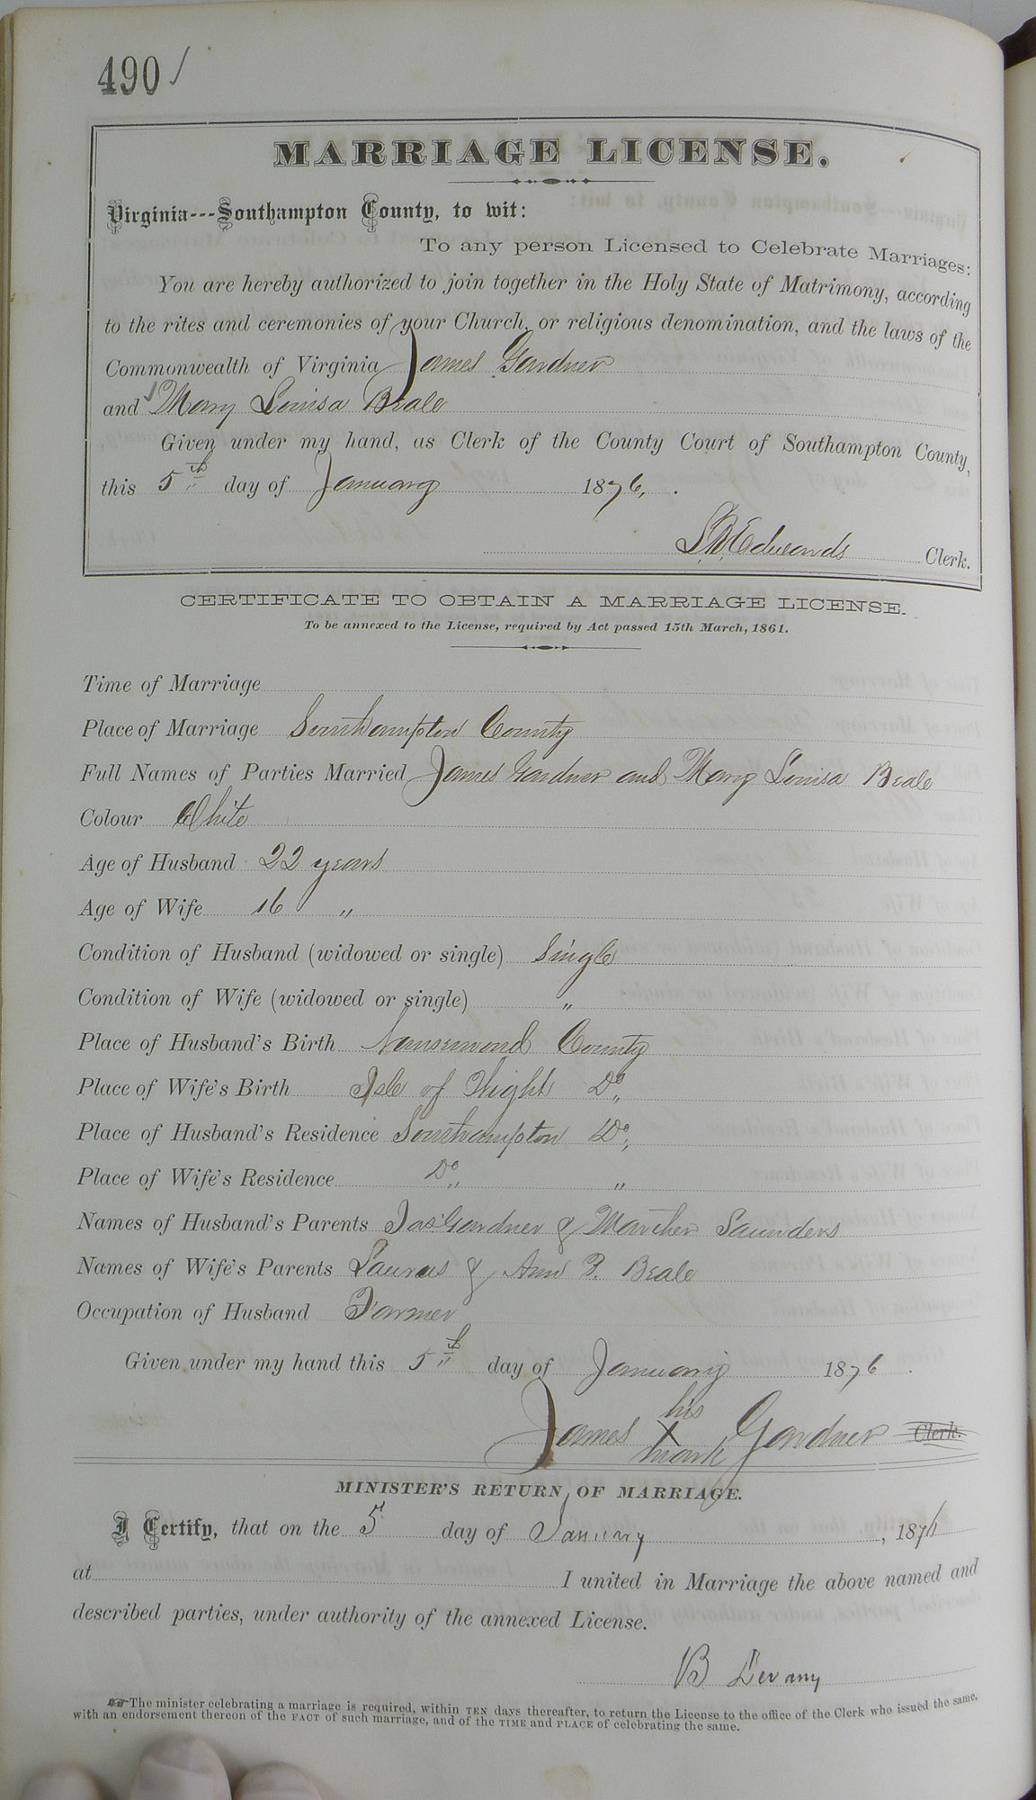 490
MARRIAGE LICENSE.
Virginia---Southampton County, to wit:
To any person Licensed to Celebrate Marriages:
You are hereby authorized to join together in the Holy State of Matrimony, according
to the rites and ceremonies of your Church, or religious denomination, and the laws of the
Commonwealth of Virginia James Gardner
and Mary Louisa Beale
Given under my hand, as Clerk of the County Court of Southampton County,
this 5th day of January 1876,
Edwards Clerk.
CERTIFICATE TO OBTAIN A MARRIAGE LICENSE.
To be annexed to the License, required by Act passed 15th March, 1861.
Time of Marriage
Place of Marriage Southampton County
Full Names of Parties Married James Gardner and Mary Louisa Beale
Colour White
Age of Husband 22 years
Age of Wife 16 "
Condition of Husband (widowed or single) Single
Condition of Wife (widowed or single) "
Place of Husband's Birth Nansemond County
Place of Wife's Birth Isle of Wight Do.
Place of Husband's Residence Southampton Do.
Place of Wife's Residence Do. "
Names of Husband's Parents Jas Gardner & Saunders
Names of Wife's Parents & Ann Beale
Occupation of Husband Farmer
Given under my hand this 5th day of January 1876.
his
James X Gardner Clerk.
mark
MINISTER'S RETURN OF MARRIAGE.
I Certify, that on the 5 day of January, 1876
at I united in Marriage the above named and
described parties, under authority of the annexed License.
B
The minister celebrating a marriage is required, within TEN days thereafter, to return the License to the office of the Clerk who issued the same,
with an endorsement thereon of the FACT of such marriage, and of the TIME and PLACE of celebrating the same.